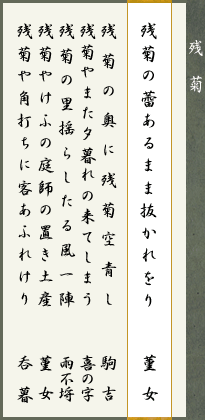 残菊
残菊の蕾あるまま抜かれをり 菫女
残菊の奥に残菊空青し 駒吉
残菊やまた夕暮れの来てしまう 喜の字
残菊の里揺らしたる風一陣 雨不埒
残菊やけふの庭師の置き土産 菫女
残菊や角打ちに客あふれけり 呑暮